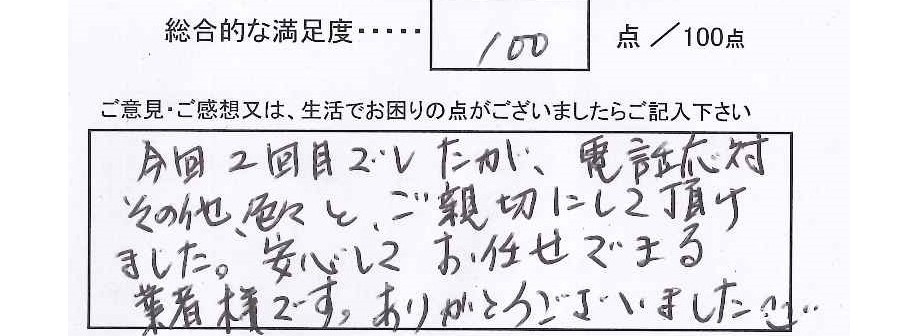 総合的な満足度‥‥‥ 100 点 ／100点
ご意見・ご感想又は、生活でお困りの点がございましたらご記入下さい
今回2回目でしたが、電話応対
その他、色々と、ご親切にして頂け
ました。安心してお任せできる
業者様です。ありがとうございました